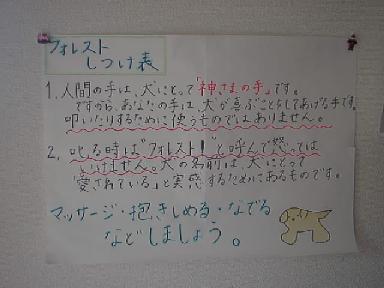 フォレスト
しつけ表
1. 人間の手は、犬にとって「神さまの手」です。
ですから、あなたの手は、犬が喜ぶことをしてあげる手です。
叩いたりするために使うものではありません。
2. 叱る時は"フォレスト!"と呼んで怒っては
いけません。犬の名前は、犬にとって
「愛されている」と実感するためにあるものです。
マッサージ・抱きしめる・なでる
などしましょう。